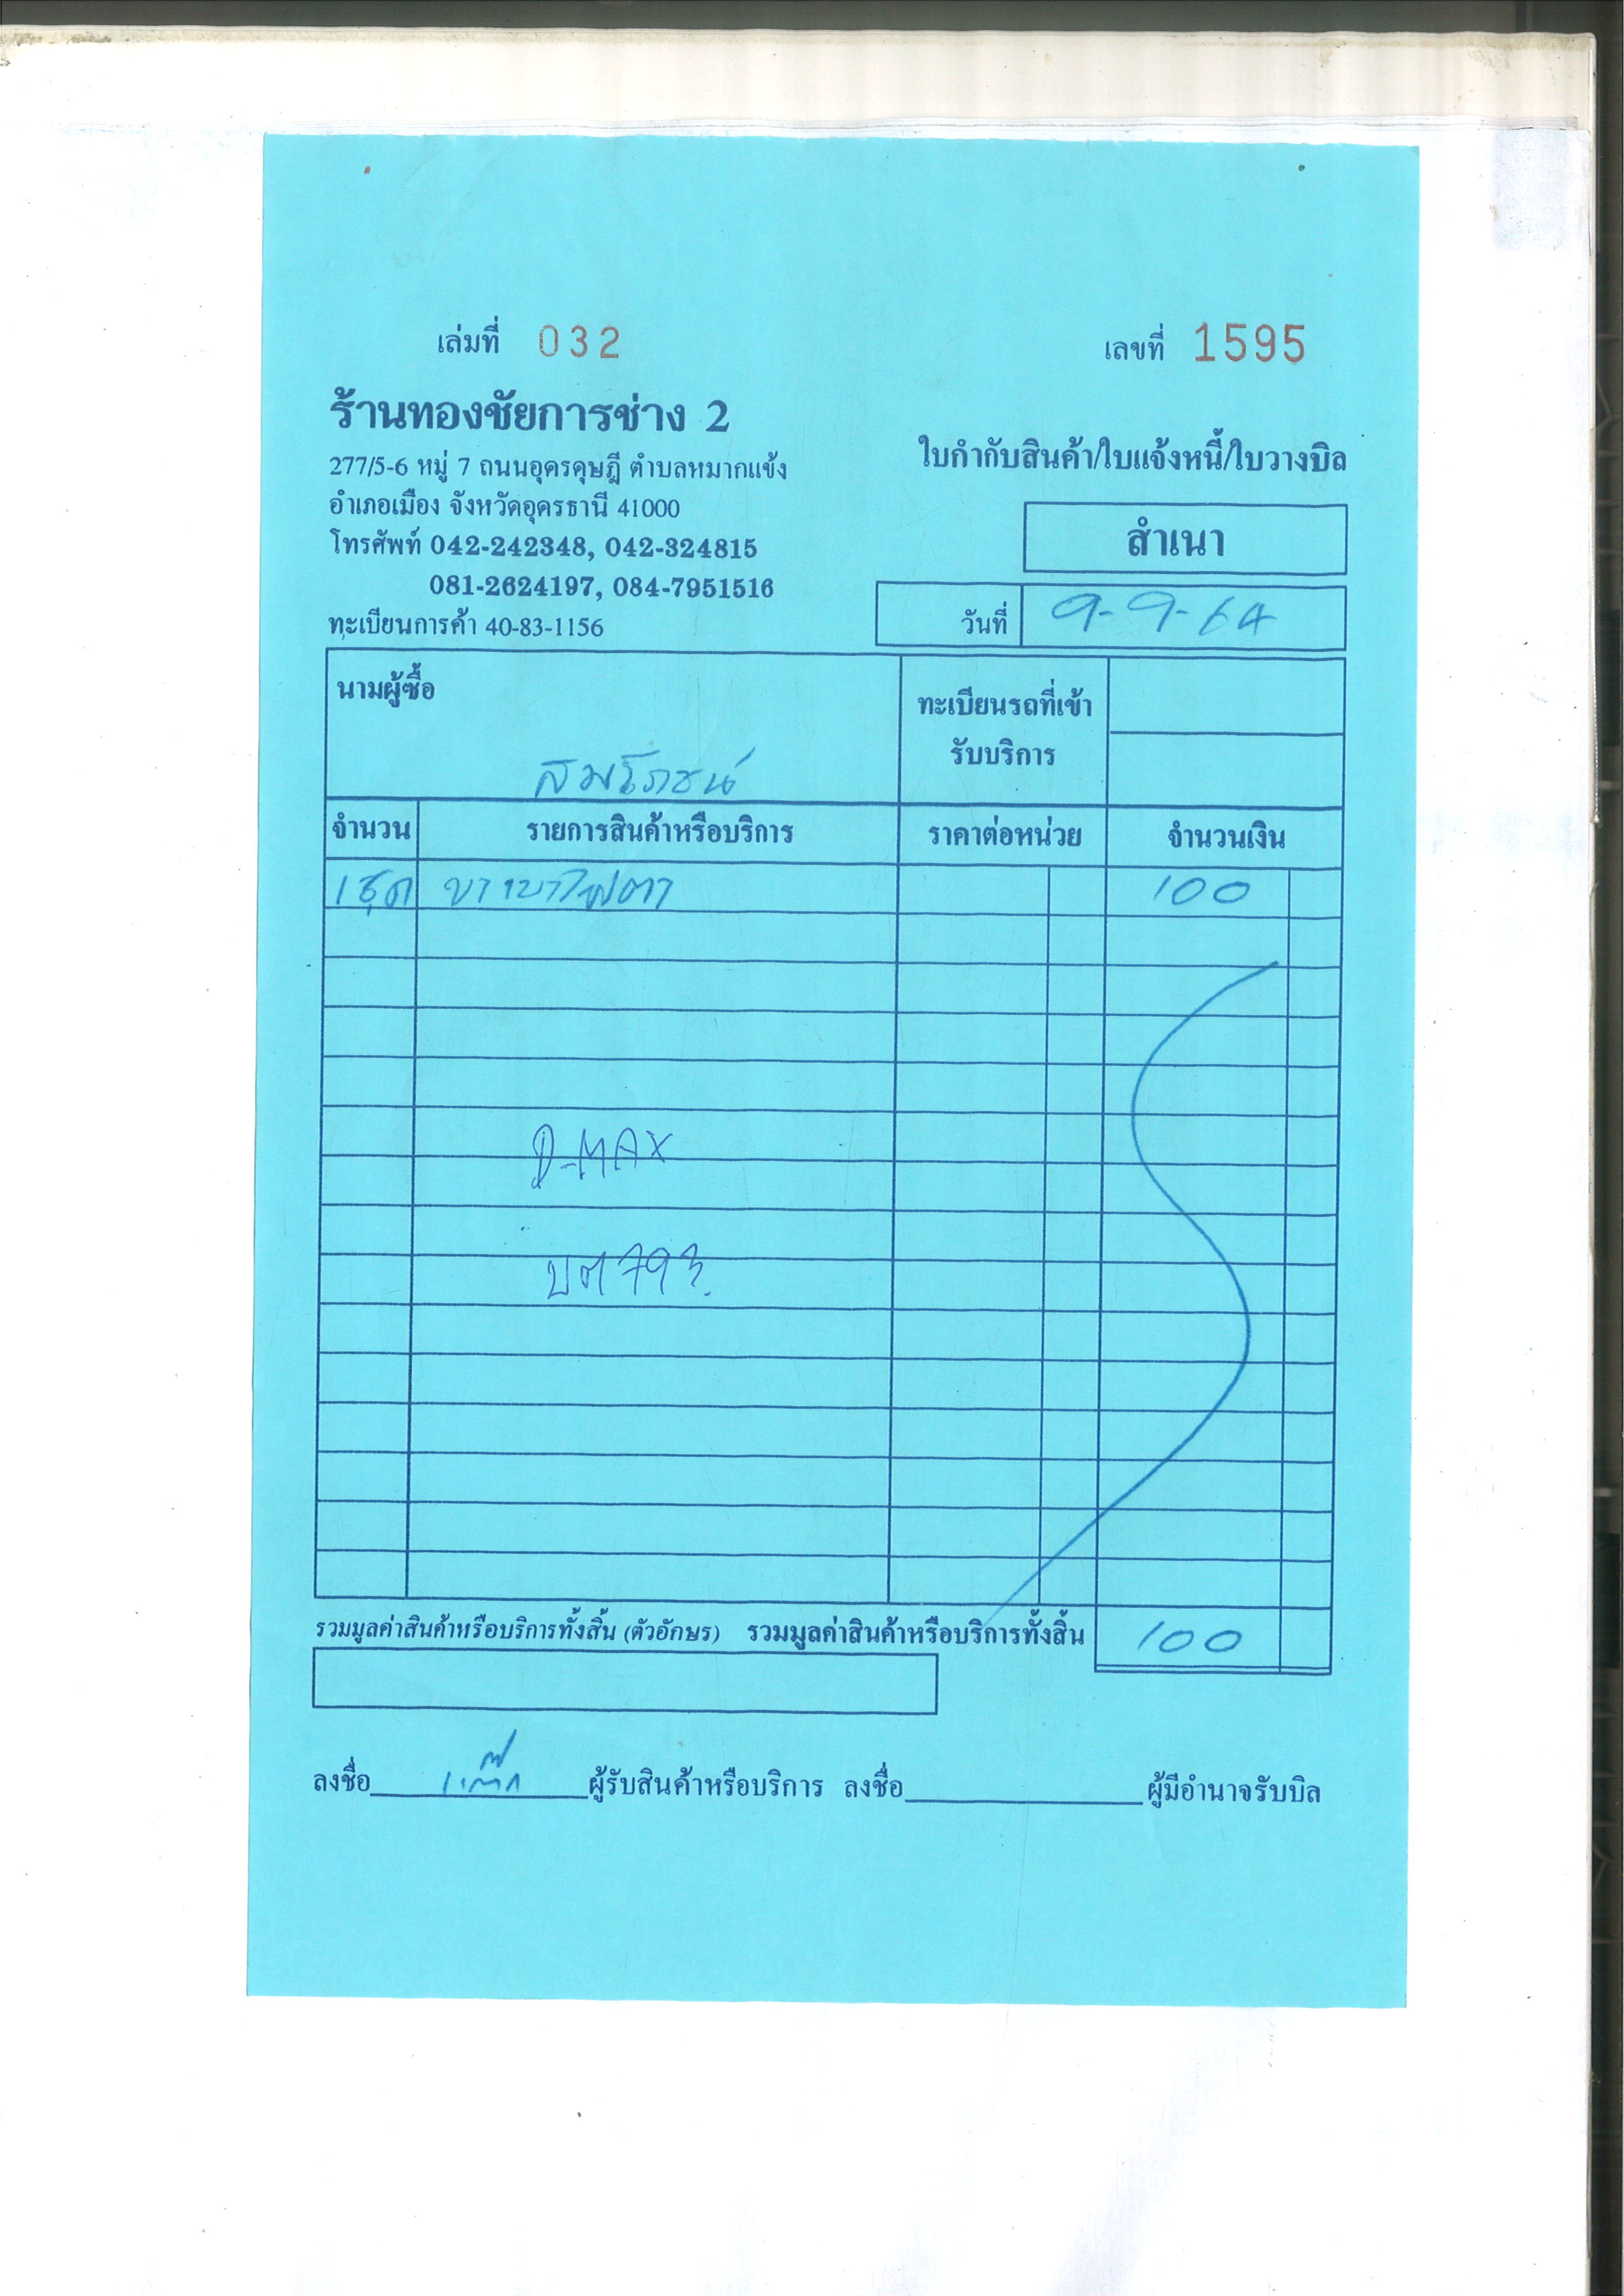 เล่มที่ 032
เลขที่ 1595
ร้านทองชัยการช่าง 2
277/5-6 หมู่ 7 ถนนอุดรดุษฎี ตำบลหมากแข้ง
อำเภอเมือง จังหวัดอุดรธานี 41000
โทรศัพท์ 042-242348, 042-324815
081-2624197, 084-7951516
ทะเบียนการค้า 40-83-1156
ใบกำกับสินค้า/ใบแจ้งหนี้/ใบวางบิล
สำเนา
วันที่ 9-9-64
นามผู้ซื้อ
ทะเบียนรถที่เข้า
รับบริการ
จำนวน รายการสินค้าหรือบริการ ราคาต่อหน่วย จำนวนเงิน
1 ชุด 100
D-MAX
793
รวมมูลค่าสินค้าหรือบริการทั้งสิ้น (ตัวอักษร) รวมมูลค่าสินค้าหรือบริการทั้งสิ้น 100
ลงชื่อ ผู้รับสินค้าหรือบริการ ลงชื่อ ผู้มีอำนาจรับบิล